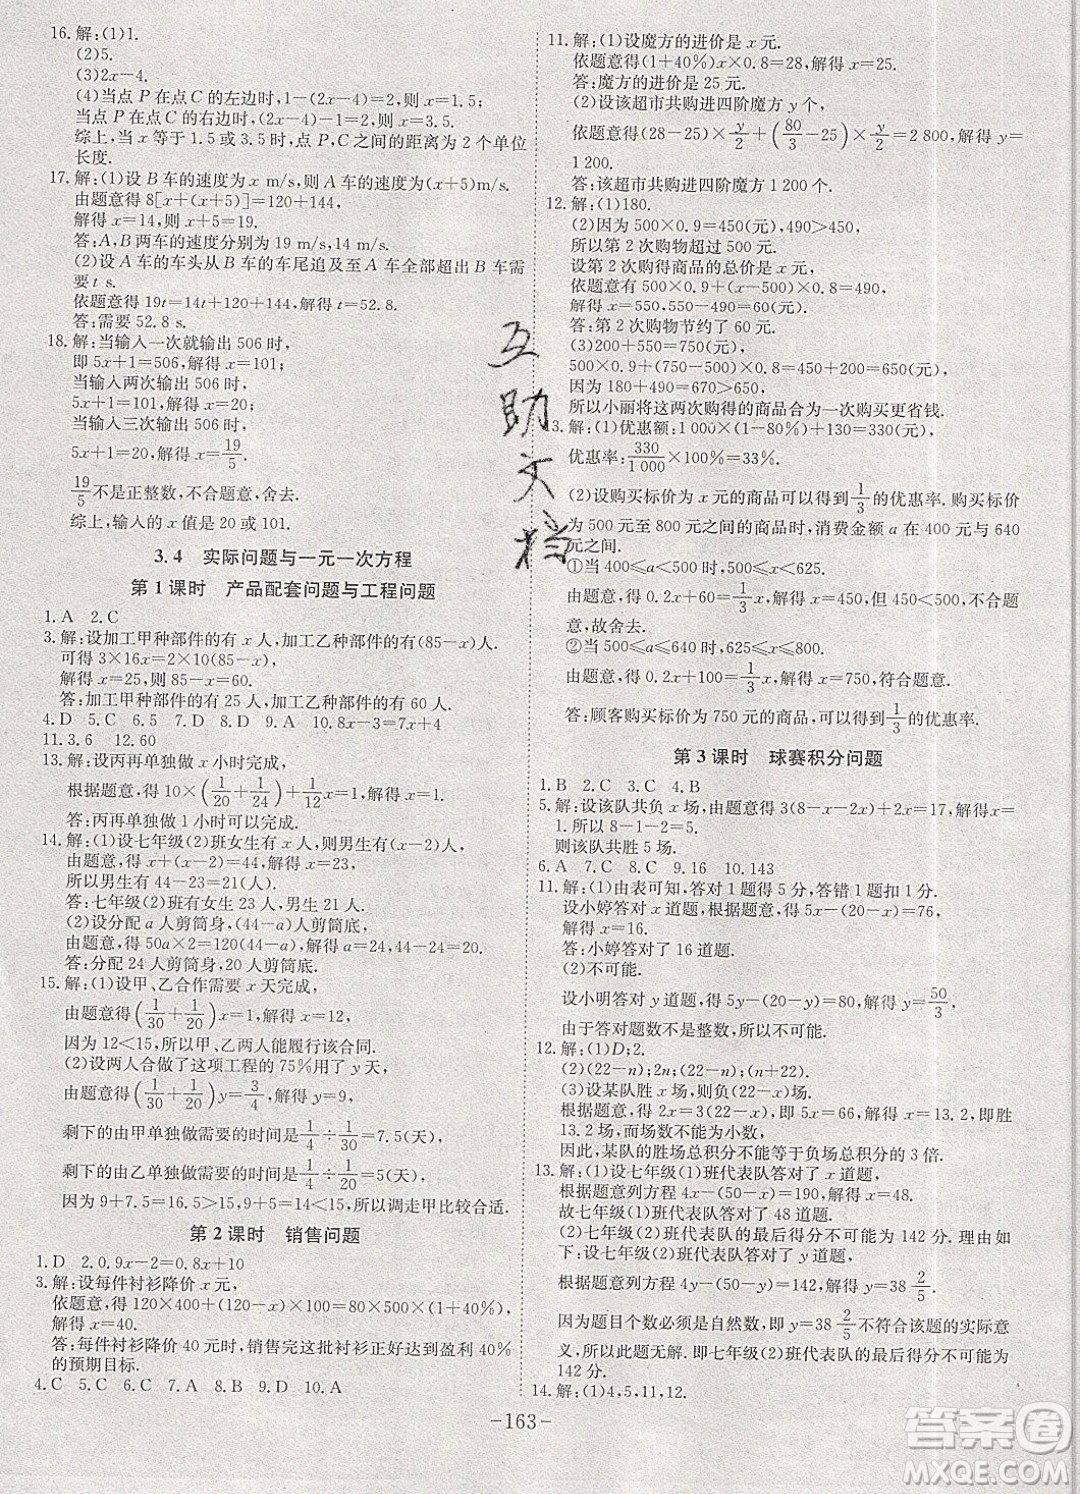 16. 解:(1)1.
(2)5.
(3)2x-4.
(4)当点 P 在点C 的左边时,1-(2x-4)=2,解得 x=1.5;
当点 P 在点C 的右边时,(2x-4)-1=2,解得 x=3.5.
综上,当 x 等于 1.5 或 3.5 时,点 P、C 间的距离为 2 个单位
长度.
17. 解:(1)设 B 车的速度为 x m/s,则 A 车的速度为(x+5)m/s.
由题意得 8[x+(x+5)]=120+144,
解得 x=14,则 x+5=19.
答:A,B 两车的速度分别为 19 m/s,14 m/s.
(2)设 A 车的车头从 B 车的车尾追及至 A 车全部超出 B 车需
要 t s.
依题意得 19t=14t+120+144,解得 t=52.8.
答:需要 52.8 s.
18. 解:当输入一次就输出 506 时,
即 5x+1=506,解得 x=101;
当输入两次输出 506 时,
即 5x+1=101,解得 x=20;
当输入三次输出 506 时,
5x+1=20,解得 x=19/5.
19/5不是正整数,不合题意,舍去.
综上,输入的 x 值是 20 或 101.
3.4 实际问题与一元一次方程
第 1 课时 产品配套问题与工程问题
1. A 2. C
3. 解:设加工甲种部件的有 x 人,加工乙种部件的有(85-x)人.
可得 3×16x=2×10(85-x).
解得 x=25,则 85-x=60.
答:加工甲种部件的有 25 人,加工乙种部件的有 60 人.
4. D 5. C 6. 5 7. D 8. C 9. A 10. 8x-3=7x+4
11. 3,6 12. 60
13. 解:设丙再单独做 x 小时完成,
根据题意,得 10×(1/20+1/24)+x/120=1,解得 x=10.
答:丙再单独做 10 小时完成.
14. 解:(1)设七年级(2)班女生有 x 人,则男生有(x-2)人.
由题意,得 x+(x-2)=44,解得 x=23,
所以男生有 x-2=23-2=21(人).
答:七年级(2)班有女生 23 人,男生 21 人.
(2)设分配 a 人剪筒身,(44-a)人剪筒底.
由题意,得 50a×2=120(44-a),解得 a=24,44-24=20.
答:分配 24 人剪筒身,20 人剪筒底.
15. 解:(1)设甲、乙合作需要 x 天完成,
由题意得(1/30+1/20)x=1,解得 x=12,
因为 12<15,所以甲、乙两人能履行该合同.
(2)设两人合做了这项工程的 75%用了 y 天,
由题意得(1/30+1/20)y=3/4,解得 y=9.
剩下的由甲单独做需要的时间是1/4÷1/30=7.5(天),
剩下的由乙单独做需要的时间是1/4÷1/20=5(天),
因为 9+7.5=16.5>15,9+5=14<15,所以调走甲比较合适.
第 2 课时 销售问题
1. D 2. 0.9x-2=0.8x+10
3. 解:设每件衬衫降价 x 元,
依题意,得 120×400+(120-x)×100=80×500×(1+40%),
解得 x=40.
答:每件衬衫降价 40 元时,销售完这批衬衫正好达到盈利 40%
的预期目标.
4. C 5. C 6. C 7. A 8. B 9. D 10. A
11. 解:(1)设魔方的进价是 x 元.
依题意得(1+40%)x×0.8=28,解得 x=25.
答:魔方的进价是 25 元.
(2)设该超市共购进四阶魔方 y 个,
依题意得(28-25)×y/2+(80/3-25)×y/2=2 800,解得 y=
1 200.
答:该超市共购进四阶魔方 1 200 个.
12. 解:(1)180.
(2)因为 500×0.9=450(元),490>450,
所以第 2 次购物超过 500 元.
设第 2 次购得商品的总价是 x 元.
依题意得 500×0.9+(x-500)×0.8=490,
解得 x=550,550-490=60(元).
答:第 2 次购物节约了 60 元.
(3)200+550=750(元),
500×0.9+(750-500)×0.8=450+200=650(元).
因为 180+490=670(元)>650(元),
所以小丽将这两次购得的商品合为一次购买更省钱.
13. 解:(1)优惠额:1 000×(1-80%)+130=330(元),
优惠率:330/1 000×100%=33%.
(2)设购买标价为 x 元的商品可以得到1/3的优惠率. 购买标价
为 500 元至 800 元之间的商品时,消费金额 a 在 400 元与 640
元之间.
①当 400≤a<500 时,500≤x<625,
由题意,得 0.2x+60=1/3x,解得 x=450,但 450<500,不合题
意,故舍去.
②当 500≤a<640 时,625≤x<800,
由题意,得 0.2x+100=1/3x,解得 x=750,符合题意.
答:顾客购买标价为 750 元的商品,可以得到1/3的优惠率.
第 3 课时 球赛积分问题
1. B 2. C 3. C 4. B
5. 解:设该队共负 x 场,由题意得 3(8-x-2x)+2x=17,解得x=
1. 所以 8-1-2=5.
则该队共胜 5 场.
6. A 7. C 8. C 9. 16 10. 143
11. 解:(1)由表可知,答对 1 题得 5 分,答错 1 题扣 1 分.
设小婷答对 x 道题,根据题意,得 5x-(20-x)=76,
解得 x=16.
答:小婷答对了 16 道题.
(2)不可能.
设小明答对 y 道题,得 5y-(20-y)=80,解得 y=50/3.
由于答对题数不是整数,所以不可能.
12. 解:(1)D;2.
(2)(22-n);2n;(22-n);(n+22).
(3)设某队胜 x 场,则负(22-x)场.
根据题意,得 2x=3(22-x),即 5x=66,解得 x=13.2,即胜
13.2 场,而场数不能为小数,
因此,某队的胜场总积分不能等于负场总积分的 3 倍.
13. 解:(1)设七年级(1)班代表队答对了 x 道题,
根据题意列方程 4x-(50-x)=190,解得 x=48.
故七年级(1)班代表队答对了 48 道题.
(2)七年级(2)班代表队的最后得分不可能为 142 分. 理由如
下:设七年级(2)班代表队答对了 y 道题,
根据题意列方程 4y-(50-y)=142,解得 y=38 2/5.
因为题目个数必须是自然数,即 y=38 2/5不符合该题的实际意
义,所以此题无解. 即七年级(2)班代表队的最后得分不可能为
142 分.
14. 解:(1)4,5,11,12.
-163-
互
助
文
档
答案圈
MXQE.COM